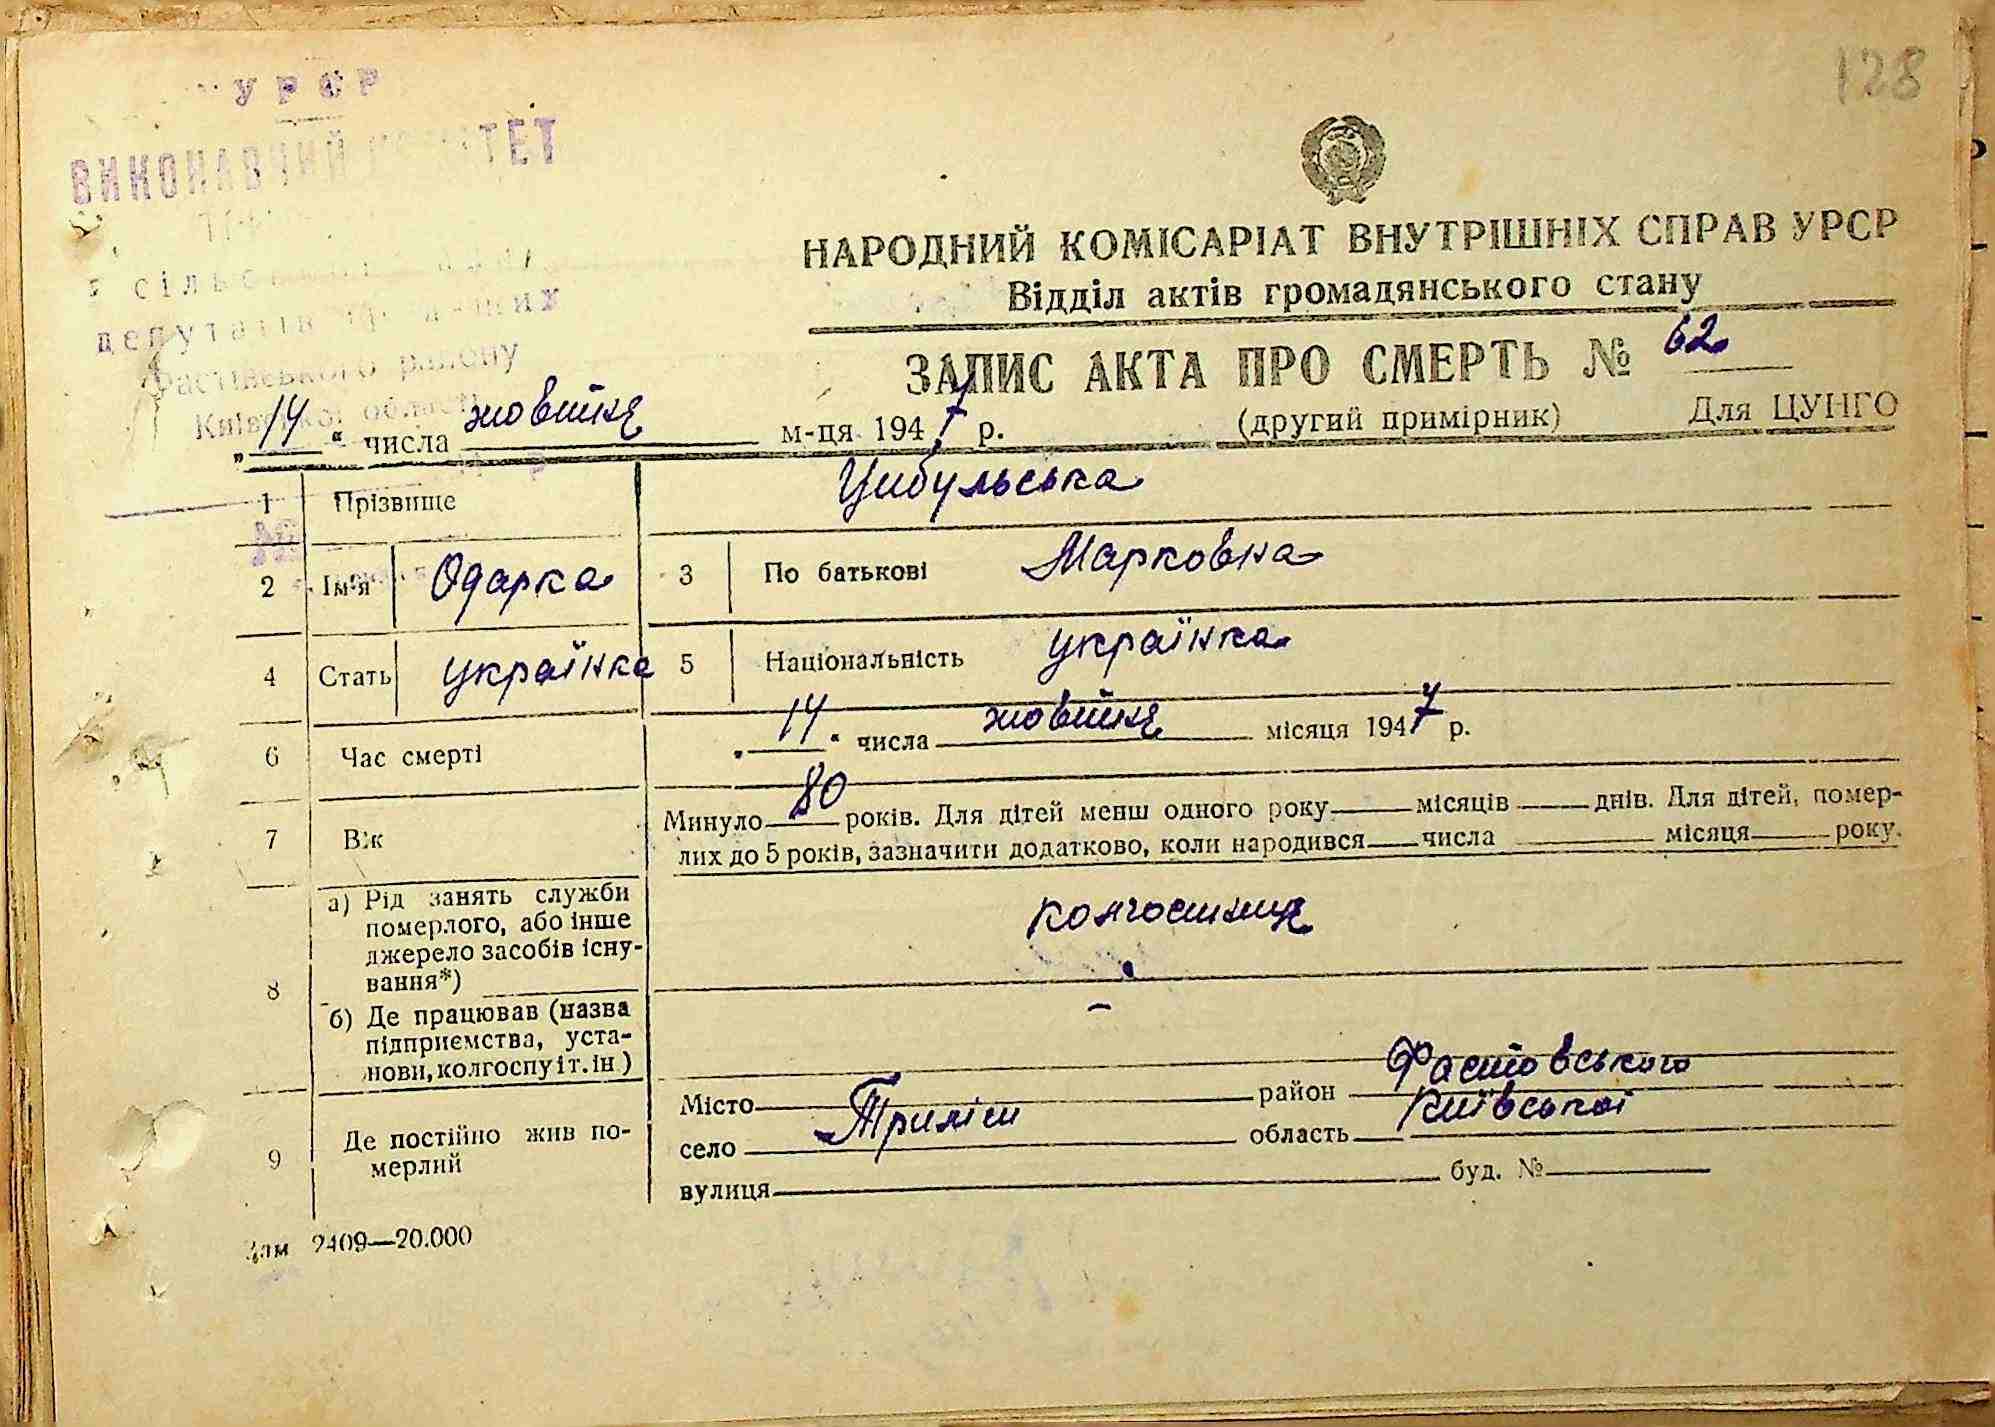 128
УРСР
ВИКОНАВЧИЙ КОМІТЕТ
депутатів
Фастівського району
Київської області
НАРОДНИЙ КОМІСАРІАТ ВНУТРІШНІХ СПРАВ УРСР
Відділ актів громадянського стану
ЗАПИС АКТА ПРО СМЕРТЬ № 62
„14“ числа жовтня м-ця 1947 р. (другий примірник) Для ЦУНГО
1 Прізвище Цибульська
2 Ім'я Одарка 3 По батькові Марковна
4 Стать українка 5 Національність українка
6 Час смерті „14“ числа жовтня місяця 1947 р.
7 Вік Минуло 80 років. Для дітей менш одного року місяців днів. Для дітей, помер-
лих до 5 років, зазначити додатково, коли народився числа місяця року.
8 а) Рід занять служби
померлого, або інше
джерело засобів існу-
вання*)
колгоспниця
б) Де працював (назва
підприємства, уста-
нови, колгоспу і т. ін)
–
9 Де постійно жив по-
мерлий
Місто район Фастовського
село Триліси область Київської
вулиця буд. №
Зам 2409—20.000